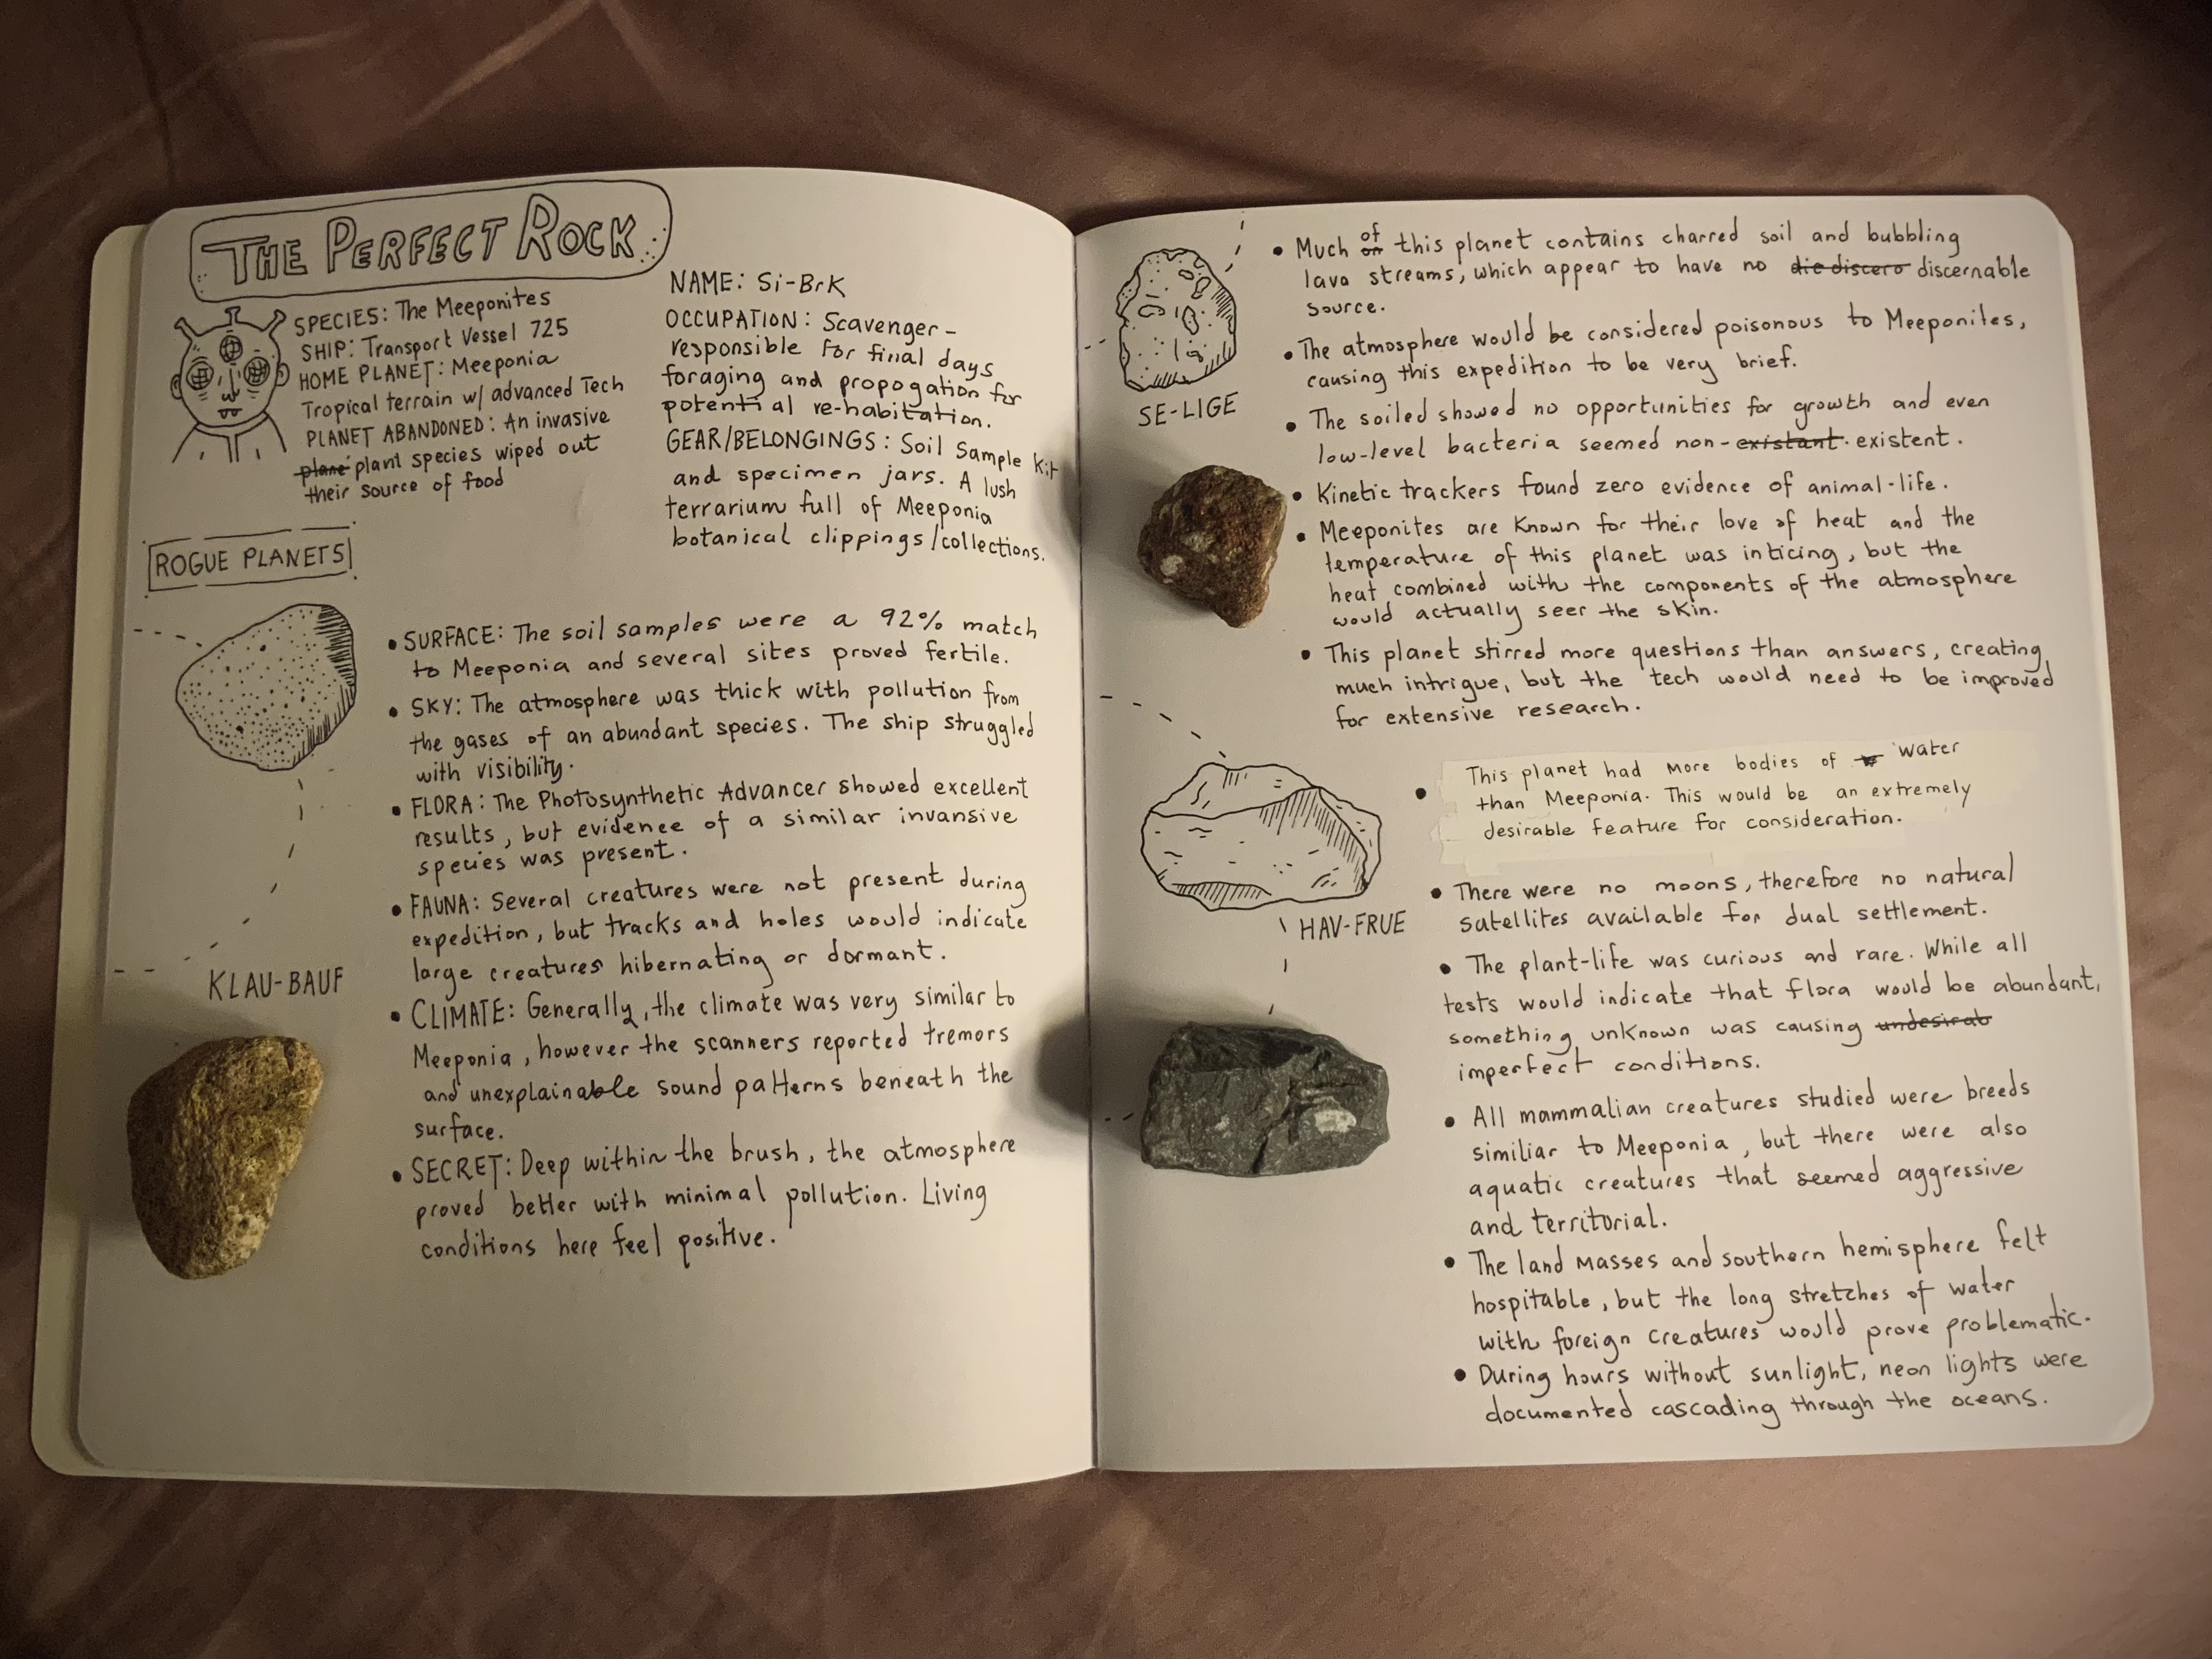 THE PERFECT ROCK
SPECIES: The Meeponites
SHIP: Transport Vessel 725
HOME PLANET: Meeponia
Tropical terrain w/ advanced Tech
PLANET ABANDONED: An invasive
plane plant species wiped out
their source of food
NAME: Si-BrK
OCCUPATION: Scavenger-
responsible for final days
foraging and propogation for
potential re-habitation.
GEAR/BELONGINGS: Soil Sample Kit
and specimen jars. A lush
terrarium full of Meeponia
botanical clippings/collections.
ROGUE PLANETS
KLAU-BAUF
• SURFACE: The soil samples were a 92% match
to Meeponia and several sites proved fertile.
• SKY: The atmosphere was thick with pollution from
the gases of an abundant species. The ship struggled
with visibility.
• FLORA: The Photosynthetic Advancer showed excellent
results, but evidence of a similar invansive
species was present.
• FAUNA: Several creatures were not present during
expedition, but tracks and holes would indicate
large creatures hibernating or dormant.
• CLIMATE: Generally, the climate was very similar to
Meeponia, however the scanners reported tremors
and unexplainable sound patterns beneath the
surface.
• SECRET: Deep within the brush, the atmosphere
proved better with minimal pollution. Living
conditions here feel positive.
SE-LIGE
• Much on of this planet contains charred soil and bubbling
lava streams, which appear to have no die discero discernable
source.
• The atmosphere would be considered poisonous to Meeponites,
causing this expedition to be very brief.
• The soiled showed no opportunities for growth and even
low-level bacteria seemed non-existant existent.
• Kinetic trackers found zero evidence of animal-life.
• Meeponites are known for their love of heat and the
temperature of this planet was inticing, but the
heat combined with the components of the atmosphere
would actually seer the skin.
• This planet stirred more questions than answers, creating
much intrigue, but the tech would need to be improved
for extensive research.
HAV-FRUE
• This planet had more bodies of w water
than Meeponia. This would be an extremely
desirable feature for consideration.
• There were no moons, therefore no natural
satellites available for dual settlement.
• The plant-life was curious and rare. While all
tests would indicate that flora would be abundant,
something unknown was causing undesirab
imperfect conditions.
• All mammalian creatures studied were breeds
similiar to Meeponia, but there were also
aquatic creatures that seemed aggressive
and territorial.
• The land masses and southern hemisphere felt
hospitable, but the long stretches of water
with foreign creatures would prove problematic.
• During hours without sunlight, neon lights were
documented cascading through the oceans.